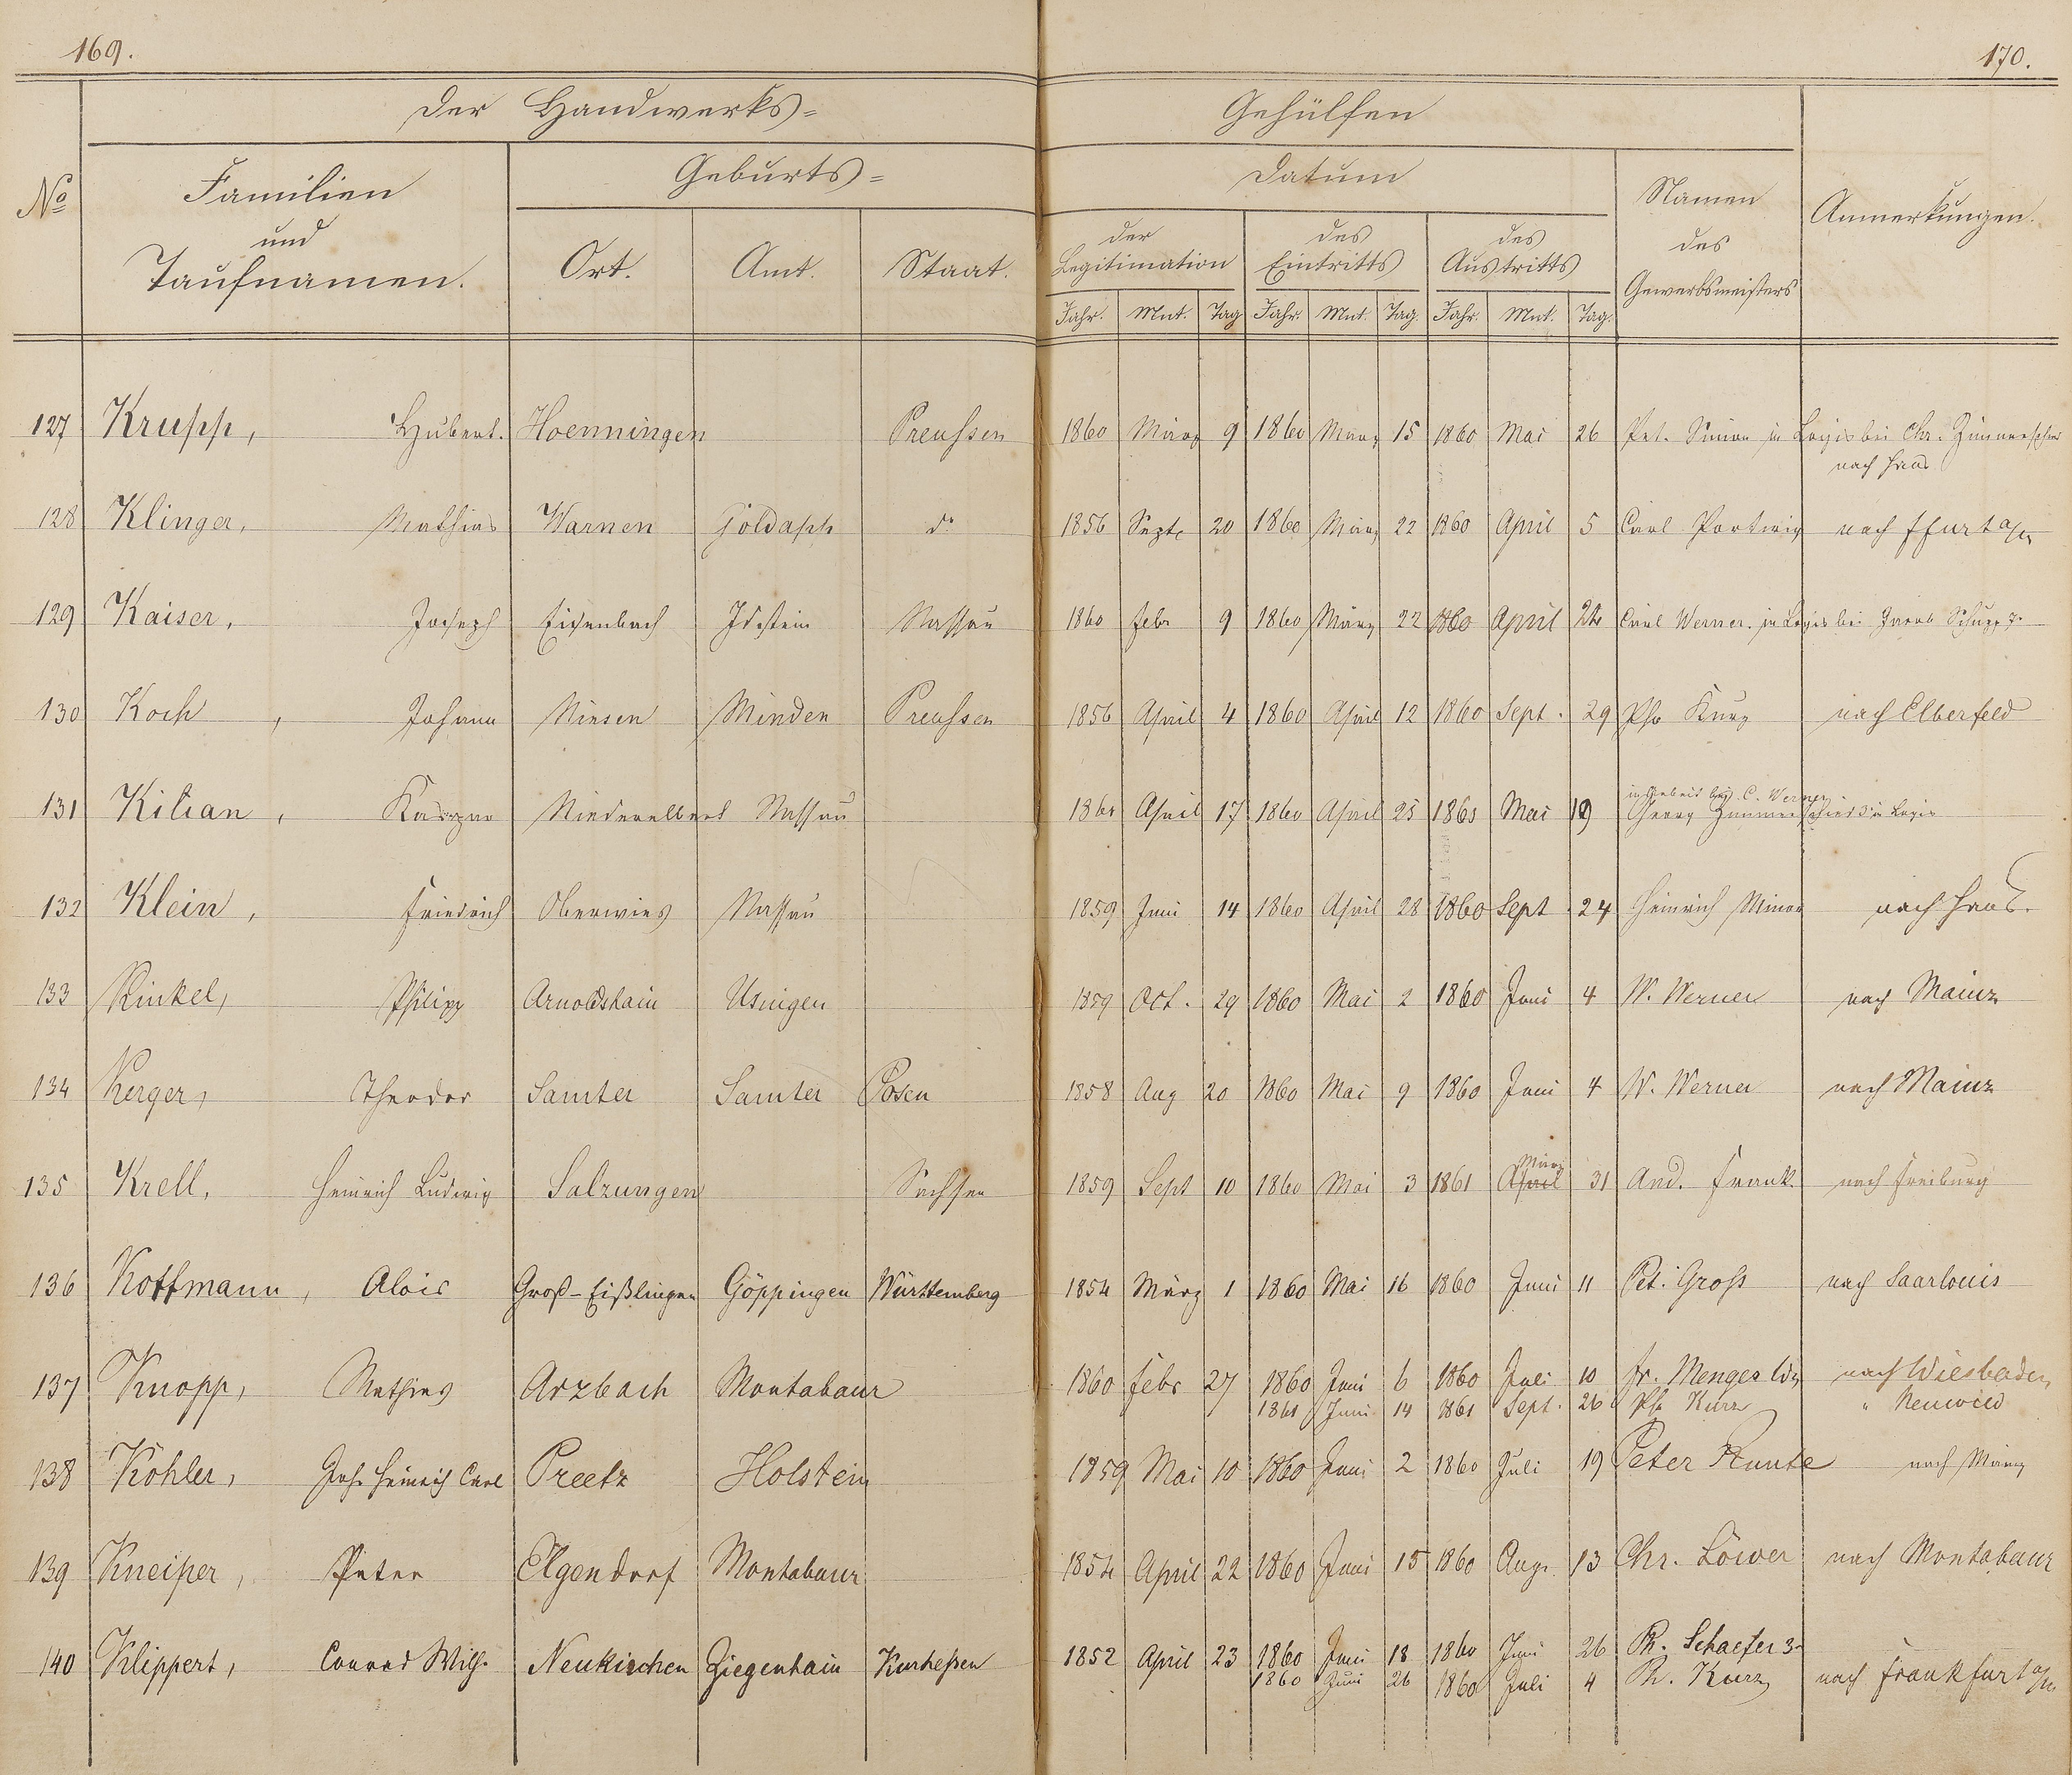 169.
170.
Der Handwerks=
Gehülfen
No
Familien
und
Taufnamen.
Geburts=
Ort.
Amt.
Staat.
Datum
der
Legitimation
des
Eintritts
des
Austritts
Jahr. Mnt. Tag Jahr. Mnt. Tag. Jahr. Mnt. Tag.
Namen
des
Gewerbsmeisters
Anmerkungen.
127 Krupp, Hubert. Hoenningen Preussen 1860 März 9 1860 März 15 1860 Mai 26 Pet. Simon in Logis bei Chr.
nach Haus
128 Klinger, Mathias Warnen Goldapp do 1856 Septr 20 1860 März 22 1860 April 5 Carl nach Ffurt a/m
129 Kaiser, Joseph Eisenbach Idstein Nassau 1860 Febr 9 1860 März 22 1860 April 24 Carl Werner. in Logis bei Jacob Schupp
130 Koch, Johann Minden Preussen 1856 April 4 1860 April 12 1860 Sept. 29 Phr Kurz nach Elberfeld
131 Kilian, Kaspar Niederelbert Nassau April 17 1860 April 25 Mai 19 in Arbeit bey C. Werner
Georg in Logis
132 Klein, Friedrich Oberwies Nassau 1859 Juni 14 1860 April 28 1860 Sept 24 Heinrich Minor nach Haus.
133 Kinkel, Philipp Arnoldshain Usingen 1859 Oct. 29 1860 Mai 2 1860 Juni 4 W. Werner nach Mainz
134 Kerger, Theodor Samter Samter Posen 1858 Aug 20 1860 Mai 9 1860 Juni 4 W. Werner nach Mainz
135 Krell, Heinrich Ludwig Salzungen Sachsen 1859 Sept 10 1860 Mai 3 1861 April März 31 And. Frank nach Freiburg
136 Kottmann, Alois Groß-Eißlingen Göppingen Württemberg 1854 März 1 1860 Mai 16 1860 Juni 11 Pet. Gross nach Saarlouis
137 Knopp, Mathias Arzbach Montabaur 1860 Febr 27 1860 Juni 6 1860 Juli 10 Fr. Menges Ww nach Wiesbaden
1861 Juni 14 1861 Sept. 26 Ph Kurz " Neuwied
138 Köhler, Joh. Heinrich Carl Preetz Holstein 1859 Mai 10 1860 Juni 2 1860 Juli 19 Peter nach Mainz
139 Kneiper, Peter Elgendorf Montabaur 1854 April 22 1860 Juni 15 1860 Aug. 13 Chr. Löwer nach Montabaur
140 Klippert, Conrad Wilh. Neukirchen Ziegenhain Kurhessen 1852 April 23 1860 Juni 18 1860 Juni 26 Ph. Schaefer 3r
1860 Juni 26 1860 Juli 4 Ph. Kurz nach Frankfurt a/m